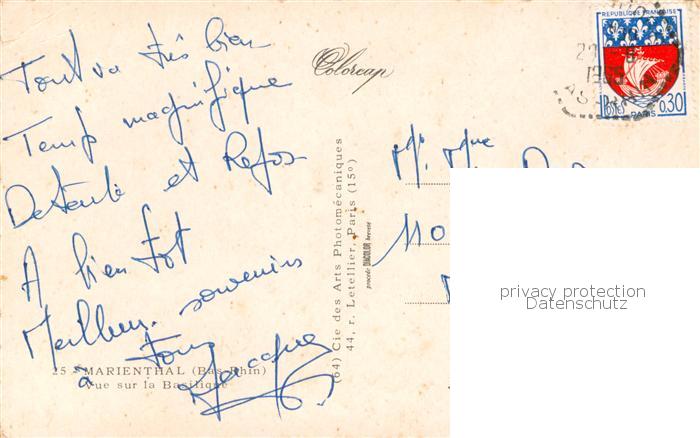 Tout va très bien
Temps magnifique
Detente et Repos
A bien tot
Meilleurs souvenirs
à tous
Jacques
25 - MARIENTHAL (Bas-Rhin)
Vue sur la Basilique
Colorcap
(64) Cie des Arts Photomécaniques
44, r. Letellier, Paris (15º)
procédé DIACOLOR breveté
REPUBLIQUE FRANÇAISE
POSTES 0,30
PARIS
M. Mme
110
privacy protection
Datenschutz